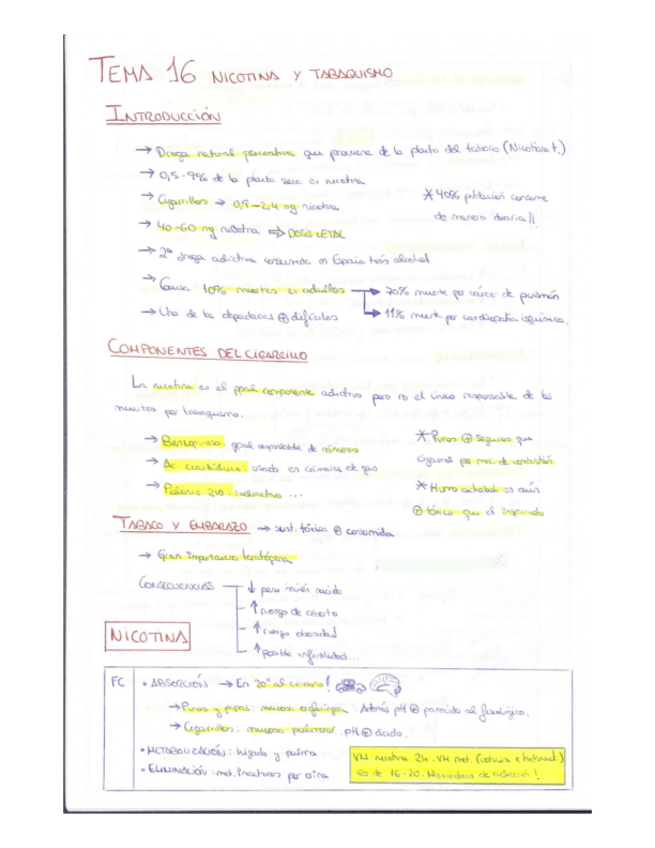 TEMA 16 NICOTINA Y TABAQUISMO
INTRODUCCIÓN
→ Droga natural psicoactiva que proviene de la planta del tabaco (Nicotiana t.)
→ 0,5-9% de la planta seca es nicotina
→ Cigarrillos → 0,9-2,4 mg nicotina
* 40% población consume
de manera diaria!!
→ 40-60 mg nicotina ⇒ DOSIS LETAL
→ 2ª droga adictiva consumida en España tras alcohol
→ Causa 10% muertes en adultos → 70% muerte por cáncer de pulmón
→ 11% muerte por cardiopatía isquémica.
→ Una de las dependencias ⊕ difíciles
COMPONENTES DEL CIGARRILLO
La nicotina es el ppal componente adictivo pero no el único responsable de las
muertes por tabaquismo.
→ Benzopireno: ppal responsable de cánceres
→ Ac. cianhídrico: usado en cámaras de gas
→ Polonio 210: radiactivo ...
* Puros ⊕ seguros que
cigarros por mec. de combustión
* Humo exhalado es aún
⊕ tóxico que el inspirado
TABACO Y EMBARAZO → sust. tóxica ⊕ consumida
→ Gran importancia teratógena
CONSECUENCIAS
↓ peso recién nacido
↑ riesgo de aborto
↑ riesgo obesidad
↑ posible infertilidad...
NICOTINA
FC
• ABSORCIÓN → En 20" al cerebro!
→ Puros y pipas: mucosa orofaríngea. Además pH ⊕ parecido al fisiológico.
→ Cigarrillos: mucosa pulmonar. pH ⊕ ácido.
• METABOLIZACIÓN: hígado y pulmón
• ELIMINACIÓN: met. inactivos por orina
VM nicotina 2h. VM met. (cotinina
es de 16-20. Marcadores de adicción!